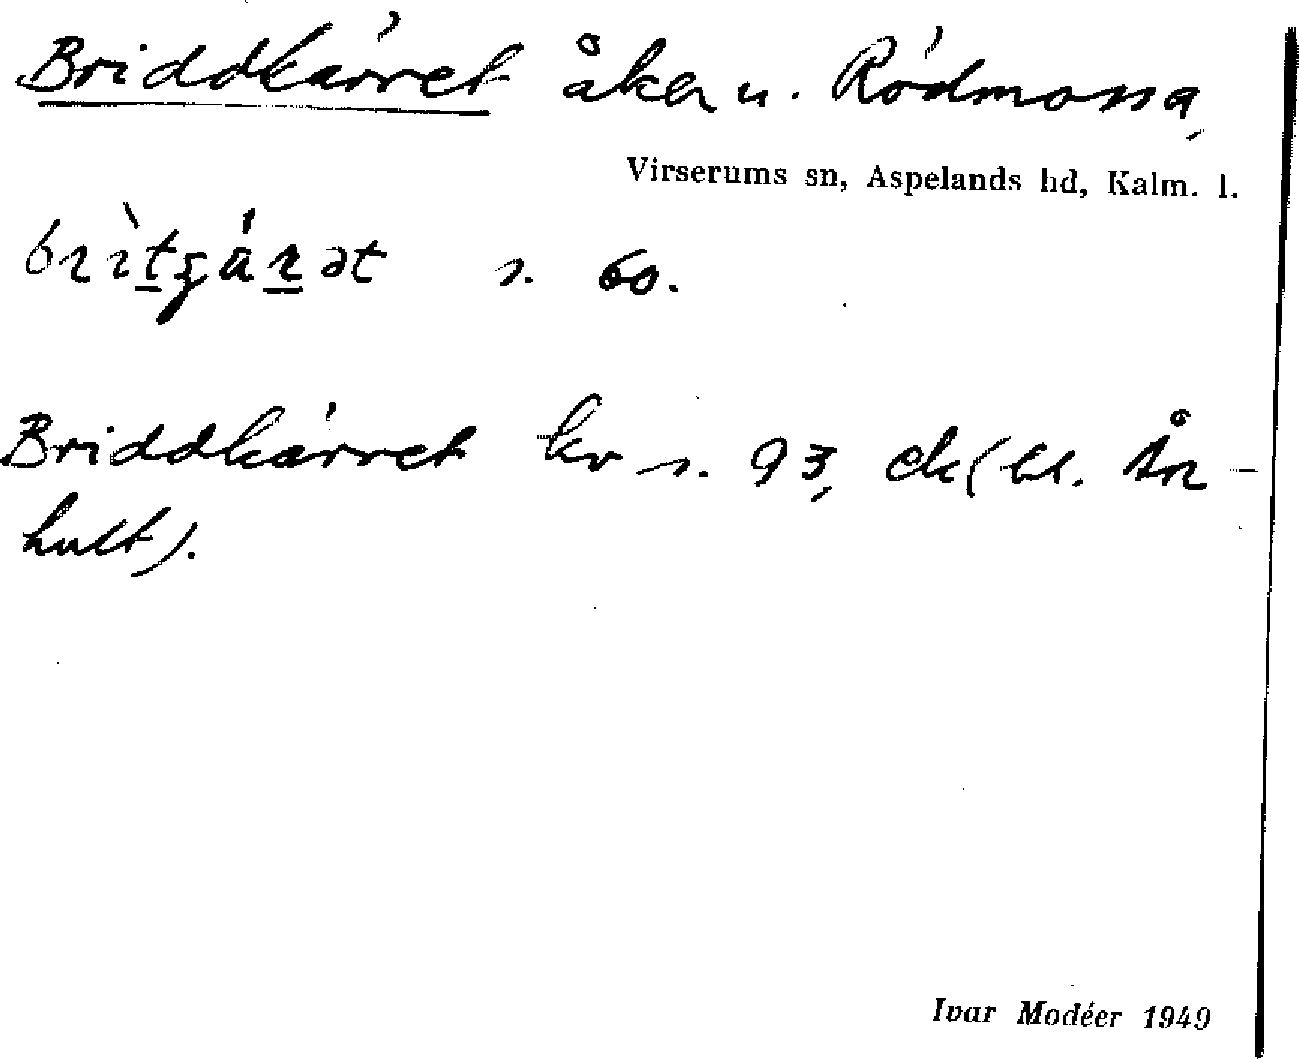 Briddkärret åker u. Rödmossa,
Virserums sn, Aspelands hd, Kalm. l.
s. 60.
Briddkärret kv s. 93, ek( bl. År-
hult).
Ivar Modéer 1949